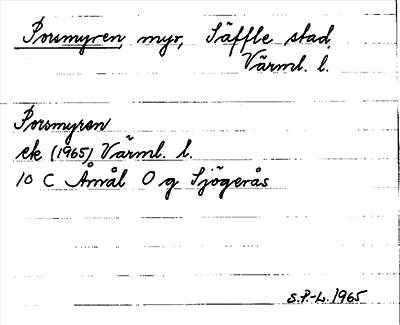 Porsmyren, myr, Säffle stad,
Värml. l.
Porsmyren
ek (1965) Värml. l.
10 C Åmål 0 g Sjögerås
S.P-L. 1965